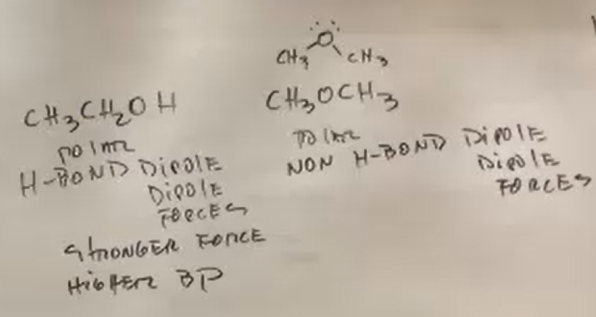 CH3CH2OH
POLAR
H-BOND DIPOLE
DIPOLE
FORCES
STRONGER FORCE
HIGHER BP
O
CH3 CH3
CH3OCH3
POLAR
NON H-BOND DIPOLE
DIPOLE
FORCES